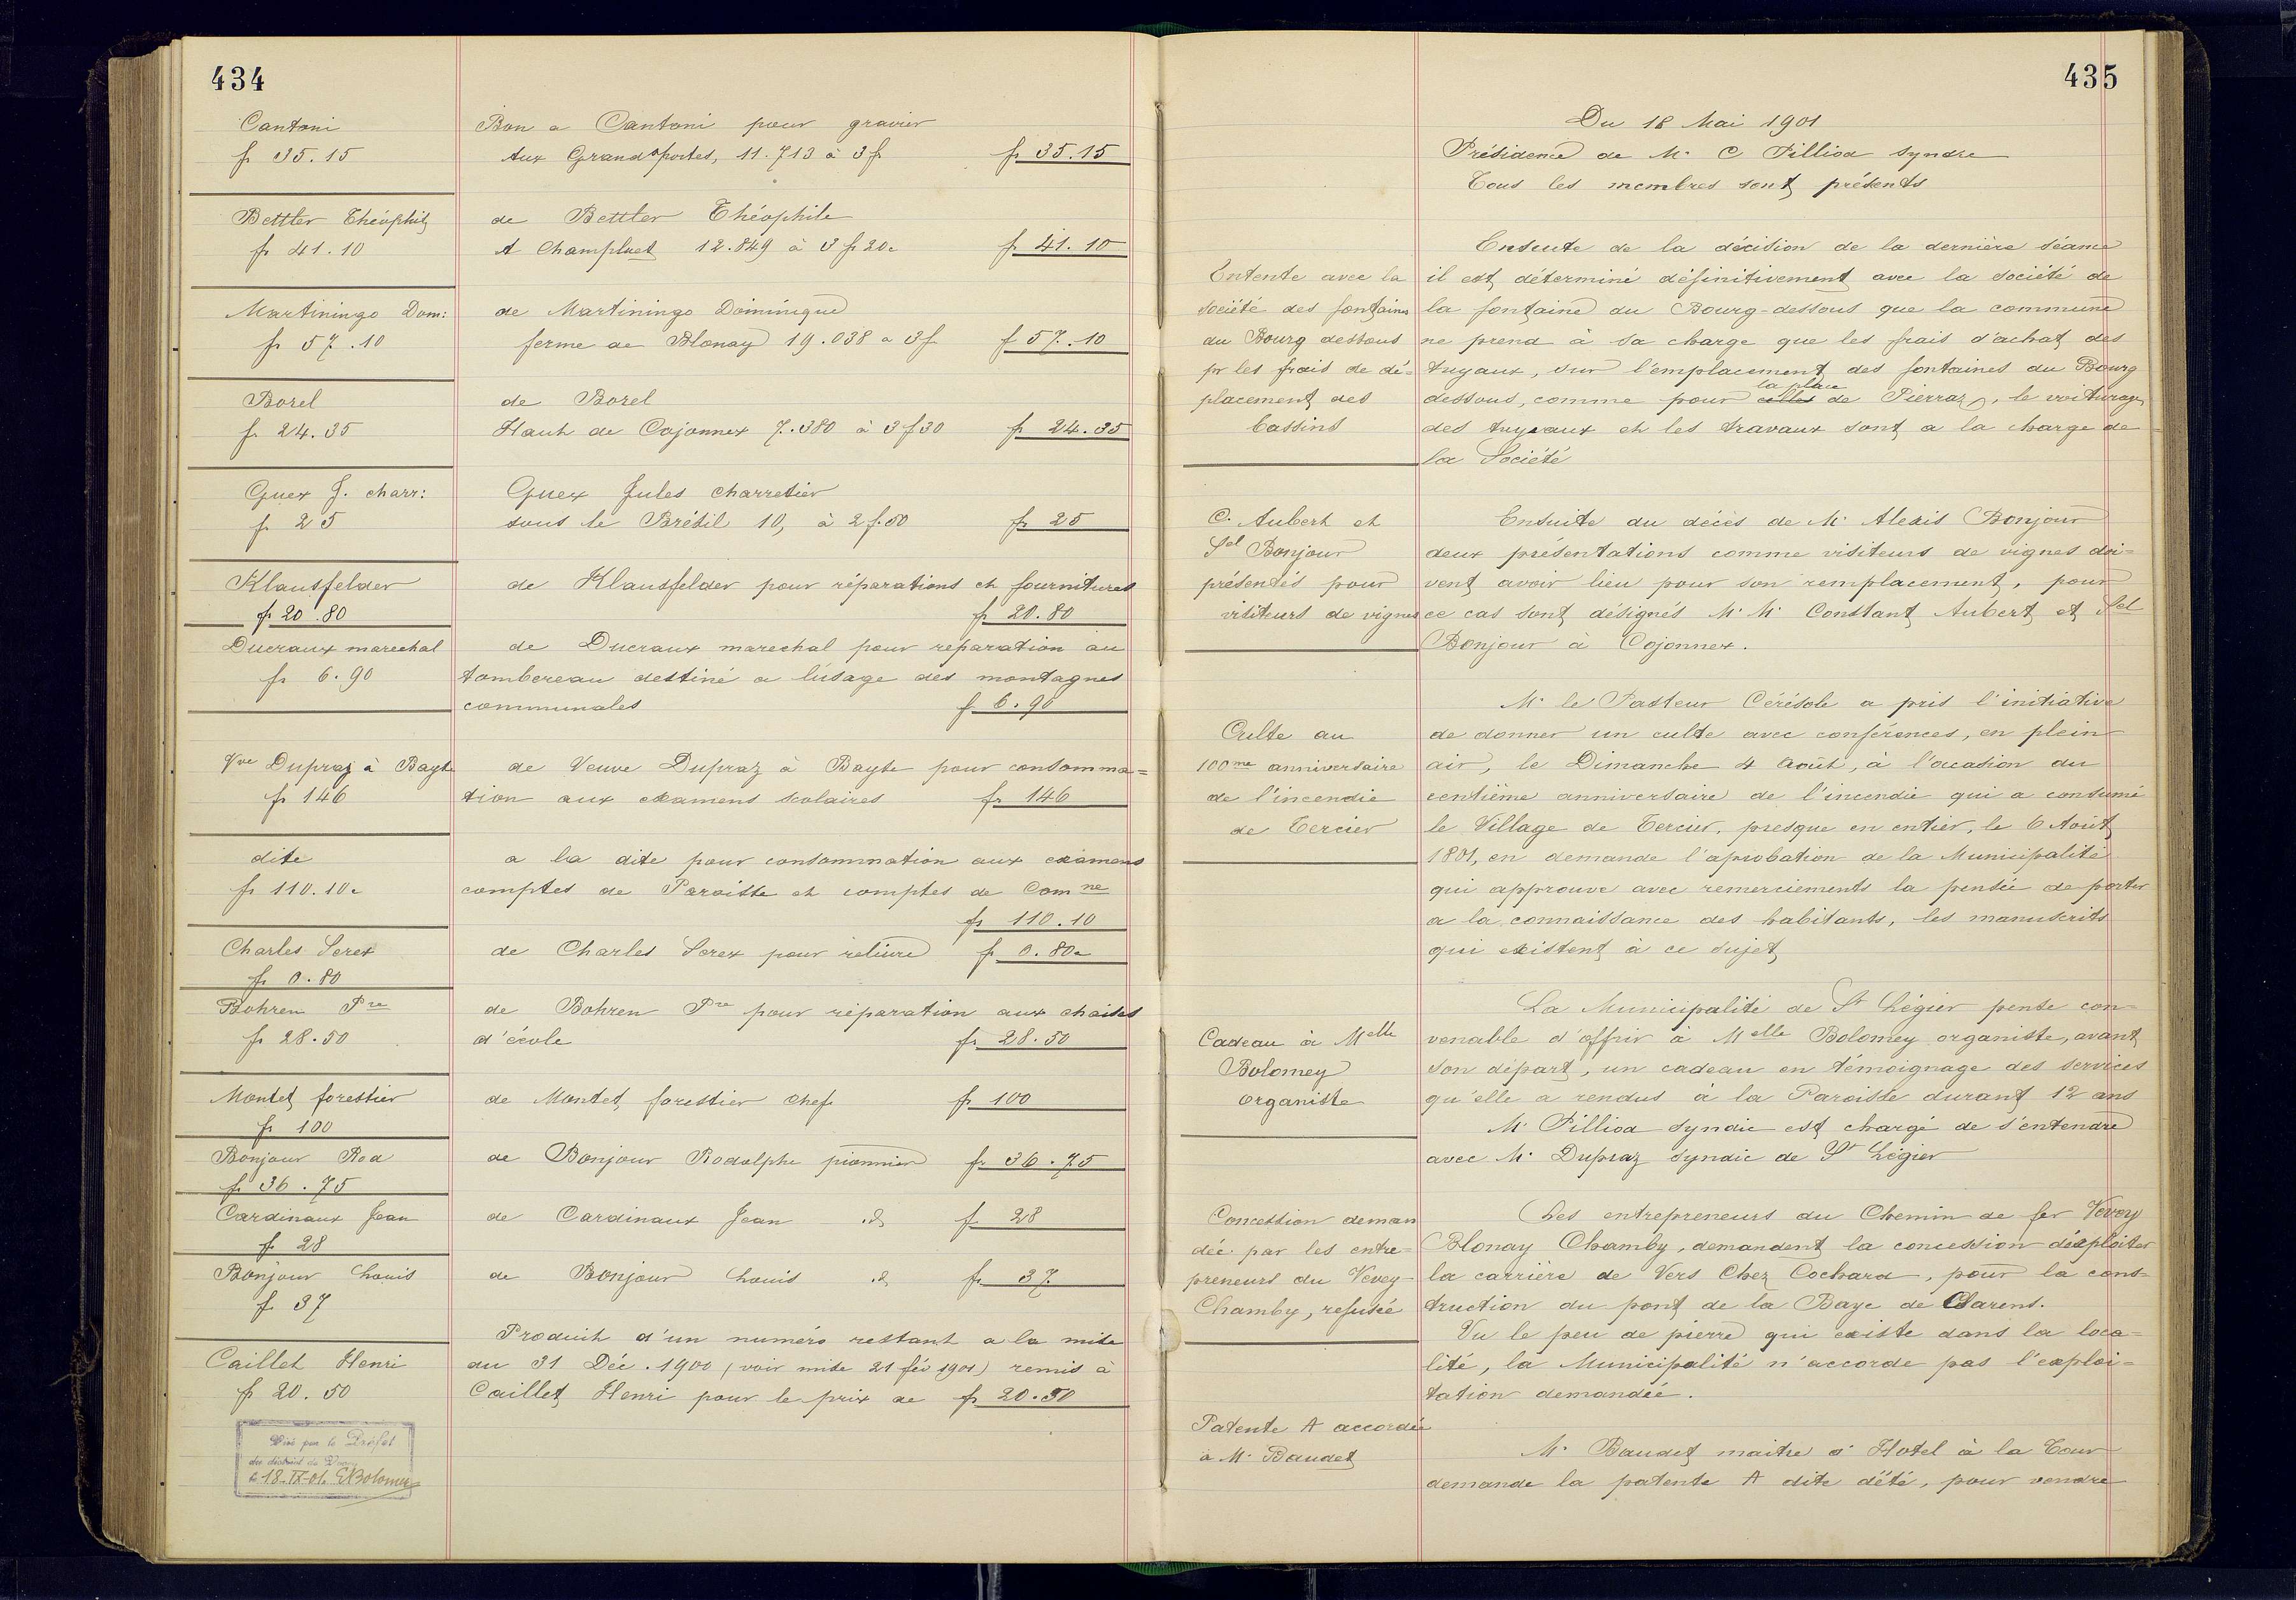 434
Cantoni
fr 35.15
Bon a Cantoni pour gravier
Aux Grands portes, 11.713 à 3 fr fr 35.15
Bettler Théophile
fr 41.10
de Bettler Théophile
A Champluet 12.849 à 3 fr 20c fr 41.10
Martiningo Dom:
fr 57.10
de Martiningo Dominique
ferme de Blonay 19.038 a 3 f f 57.10
Borel
fr 24.35
de Borel
Haut de Cojonnex 7.380 à 3 f 30 fr 24.35
Guex J. charr:
fr 25
Guex Jules charretier
sous le Brésil 10, à 2 f.50 fr 25
Klausfelder
fr 20.80
de Klausfelder pour réparations et fournitures
fr 20.80
Ducraux marechal
fr 6.90
de Ducraux marechal pour reparation au
tombereau destiné a l'usage des montagnes
communales f 6.90
Vve Dupraz à Bayse
fr 146
de Veuve Dupraz à Bayse pour consomma=
tion aux examens scolaires fr 146
dite
fr 110.10c
a la dite pour consommation aux examens
comptes de Paroisse et comptes de Comne
fr 110.10
Charles Serex
fr 0.80
de Charles Serex pour reliure f 0.80c
Bohren Pre
fr 28.50
de Bohren Pre pour réparation aux chaises
d'école fr 28.50
Montet forestier
fr 100
de Montet forestier chef fr 100
Bonjour Rod
fr 36.75
de Bonjour Rodolphe pionnier fr 36.75
Cardinaux Jean
fr 28
de Cardinaux Jean id fr 28
Bonjour Louis
fr 37
de Bonjour Louis id fr 37
Caillet Henri
fr 20.50
Produit d'un numéro restant a la mise
du 31 Déc. 1900 (voir mise 21 fév 1901) remis à
Caillet Henri pour le prix de fr 20.50
Visé par le Préfet
du district de Vevey
le 18.IX.01. EBolomey
435
Du 18 Mai 1901
Présidence de M. C Pilliod syndic
Tous les membres sont présents
Entente avec la
société des fontaines
du Bourg dessous
pr les frais de dé=
placement des
bassins
Ensuite de la décision de la dernière séance
il est déterminé définitivement avec la société de
la fontaine du Bourg-dessous que la commune
ne prend à sa charge que les frais d'achat des
tuyaux, sur l'emplacement des fontaines du Bourg
dessous, comme pour celles la place de Pierraz, le voiturage
des tuyaux et les travaux sont a la charge de
la Société
C. Aubert et
Sel Bonjour
présentés pour
visiteurs de vignes
Ensuite du décès de M. Alexis Bonjour
deux présentations comme visiteurs de vignes doi=
vent avoir lieu pour son remplacement, pour
ce cas sont désignés M. M. Constant Aubert et Sel
Bonjour à Cojonnex.
Culte au
100me anniversaire
de l'incendie
de Tercier
M. le Pasteur Cérésole a pris l'initiative
de donner un culte avec conférences, en plein
air, le Dimanche 4 Août, à l'occasion du
centième anniversaire de l'incendie qui a consumé
le Village de Tercier, presque en entier, le 6 Août
1801, en demande l'aprobation de la Municipalité
qui approuve avec remerciements la pensée de porter
a la connaissance des habitants, les manuscrits
qui existent à ce sujet
Cadeau à Melle
Bolomey
organiste
La Municipalité de St Légier pense con=
venable d'offrir à Melle Bolomey organiste, avant
son départ, un cadeau en témoignage des services
qu'elle a rendus à la Paroisse durant 12 ans
M. Pilliod syndic est chargé de s'entendre
avec M. Dupraz syndic de St Légier
Concession deman
dée par les entre=
preneurs du Vevey-
Chamby, refusée
Les entrepreneurs du Chemin de fer Vevey
Blonay Chamby, demandent la concession d'exploiter
la carrière de Vers Chez Cochard, pour la cons=
truction du pont de la Baye de Clarens.
Vu le peu de pierre qui existe dans la loca=
lité, la Municipalité n'accorde pas l'exploi=
tation demandée.
Patente A accordée
à M. Baudet
M. Baudet maitre d'Hotel à la Tour
demande la patente A dite d'été, pour vendre